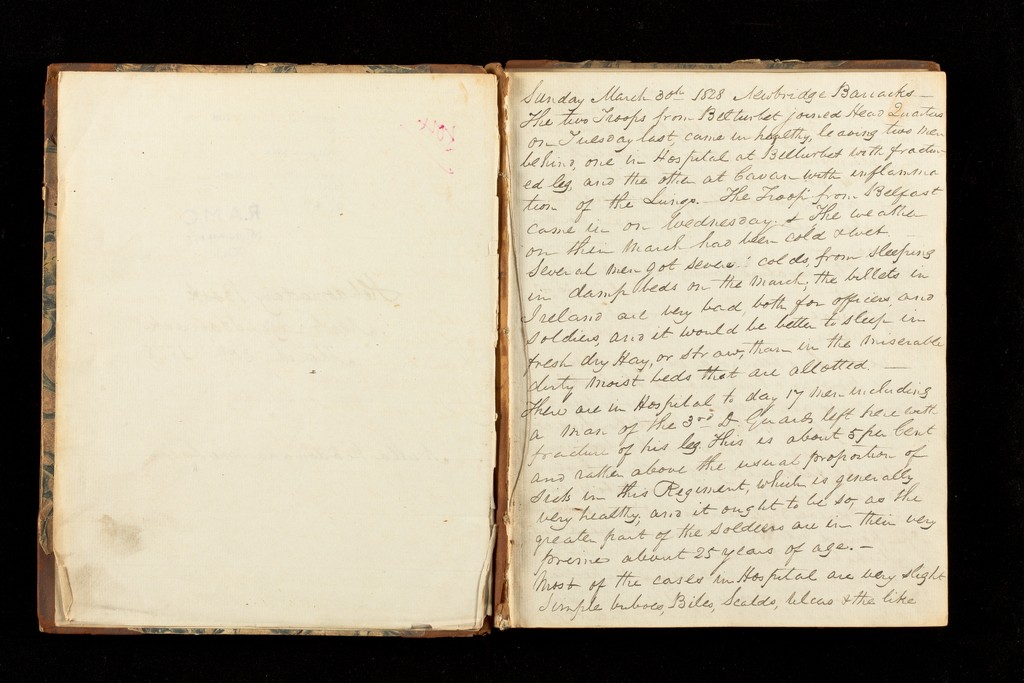 Sunday March 30th 1828 Newbridge Barracks —
The two Troops from Belturbet joined Head Quarters
on Tuesday last, came in healthy, leaving two men
behind, one in Hospital at Belturbet with fractur-
ed leg, and the other at Cavan with inflamma
tion of the Lungs. The Troop from Belfast
came in on Wednesday. & The weather
on their March had been cold & wet. —
Several men got severe colds, from sleeping
in damp beds on the March; the billets in
Ireland are very bad, both for officers, and
soldiers, and it would be better to sleep in
fresh dry Hay, or straw, than in the miserable
dirty moist beds that are allotted. —
There are in Hospital to day 17 men including
a man of the 3rd D Guards left here with
fracture of his leg. This is about 5 per Cent
and rather above the usual proportion of
sick in this Regiment, which is generally
very healthy, and it ought to be so, as the
greater part of the soldiers are in their very
prime about 25 years of age. —
Most of the cases in Hospital are very slight
Simple buboes, Biles, Scalds, ulcers & the like
R.A.M.C.